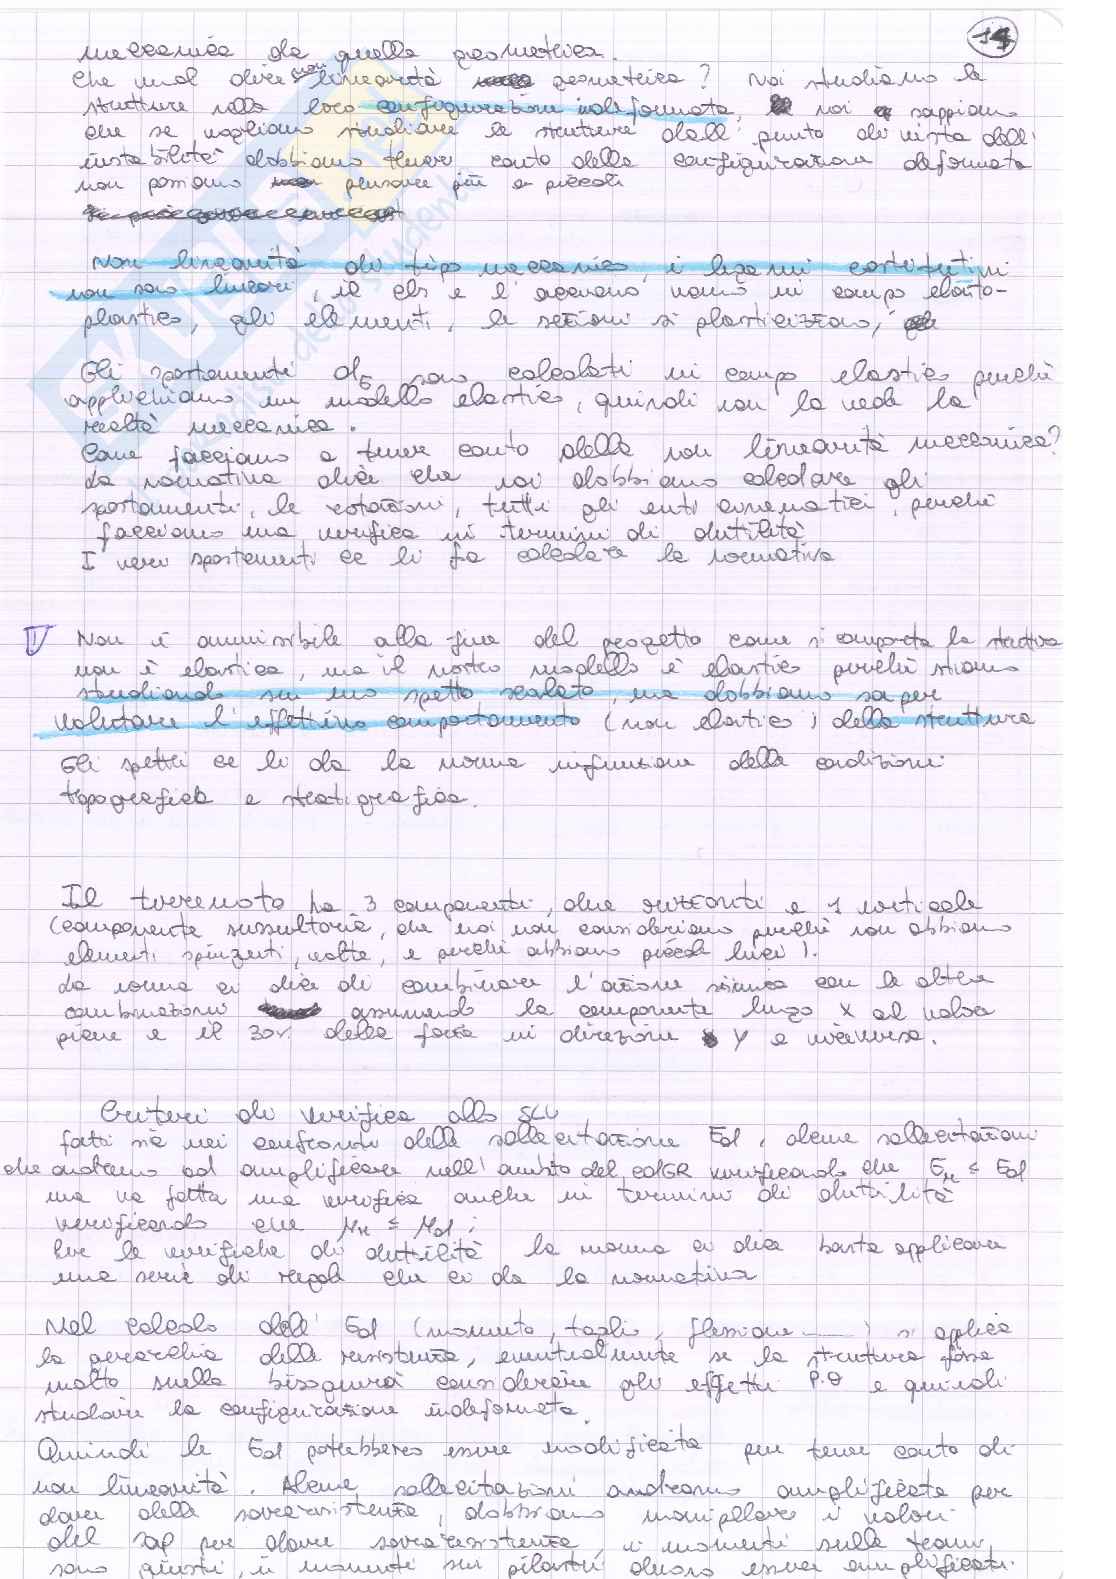 14
meccanica da quella geometrica.
Che vuol dire non linearità geometrica? Noi studiamo le
strutture nella loro configurazione indeformata, noi sappiamo
che se vogliamo studiare le strutture dall' punto di vista dell'
instabilità dobbiamo tener conto della configurazione deformata
non possiamo pensare più a piccoli
Non linearità di tipo meccanico, i legami costitutivi
non sono lineari, il cls e l'acciaio vanno in campo elasto-
plastico, gli elementi, le sezioni si plasticizzano,
Gli spostamenti dE sono calcolati in campo elastico perchè
applichiamo un modello elastico, quindi non la vede la
realtà meccanica.
Come facciamo a tener conto della non linearità meccanica?
La normativa dice che noi dobbiamo calcolare gli
spostamenti, le rotazioni, tutti gli enti cinematici, perchè
facciamo una verifica in termini di duttilità
I veri spostamenti ce li fa calcolare la normativa
Non è ammissibile alla fine del progetto come si comporta la struttura
non è elastica, ma il nostro modello è elastico perchè stiamo
studiando su uno spettro scalato, ma dobbiamo saper
valutare l'effettivo comportamento (non elastico) della struttura
Gli spettri ce li da la norma in funzione delle condizioni
topografica e stratigrafica.
Il terremoto ha 3 componenti, due orizzonti e 1 verticale
(componente sussultoria, che noi non consideriamo perchè non abbiamo
elementi spingenti, volte, e perchè abbiamo piccole luci).
La norma ci dice di combinare l'azione sismica con le altre
combinazioni assumendo la componente lungo X al valore
pieno e il 30% della forza in direzione Y e viceversa.
Criteri di verifica allo SLU
fatti sia nei confronti delle sollecitazione Ed, alcune sollecitazioni
che andremo ad amplificare nell'ambito del edGR verificando che ≤ Ed
ma va fatta una verifica anche in termini di duttilità
verificando che ≤ μd;
Per le verifiche di duttilità la norma ci dice basta applicare
una serie di regole che ci da la normativa
Nel calcolo dell' Ed (momento, taglio, flessione ......) si applica
la gerarchia delle resistenza, eventualmente se la struttura fosse
molto snella bisognerà considerare gli effetti P.θ e quindi
studiare la configurazione indeformata.
Quindi le Ed potrebbero essere modificata per tener conto di
non linearità. Alcune sollecitazioni andranno amplificate per
dare della sovraresistenza, dobbiamo manipolare i valori
del sap per dare sovraresistenza, i momenti sulle travi
sono giusti, i momenti sui pilastri devono essere amplificati.